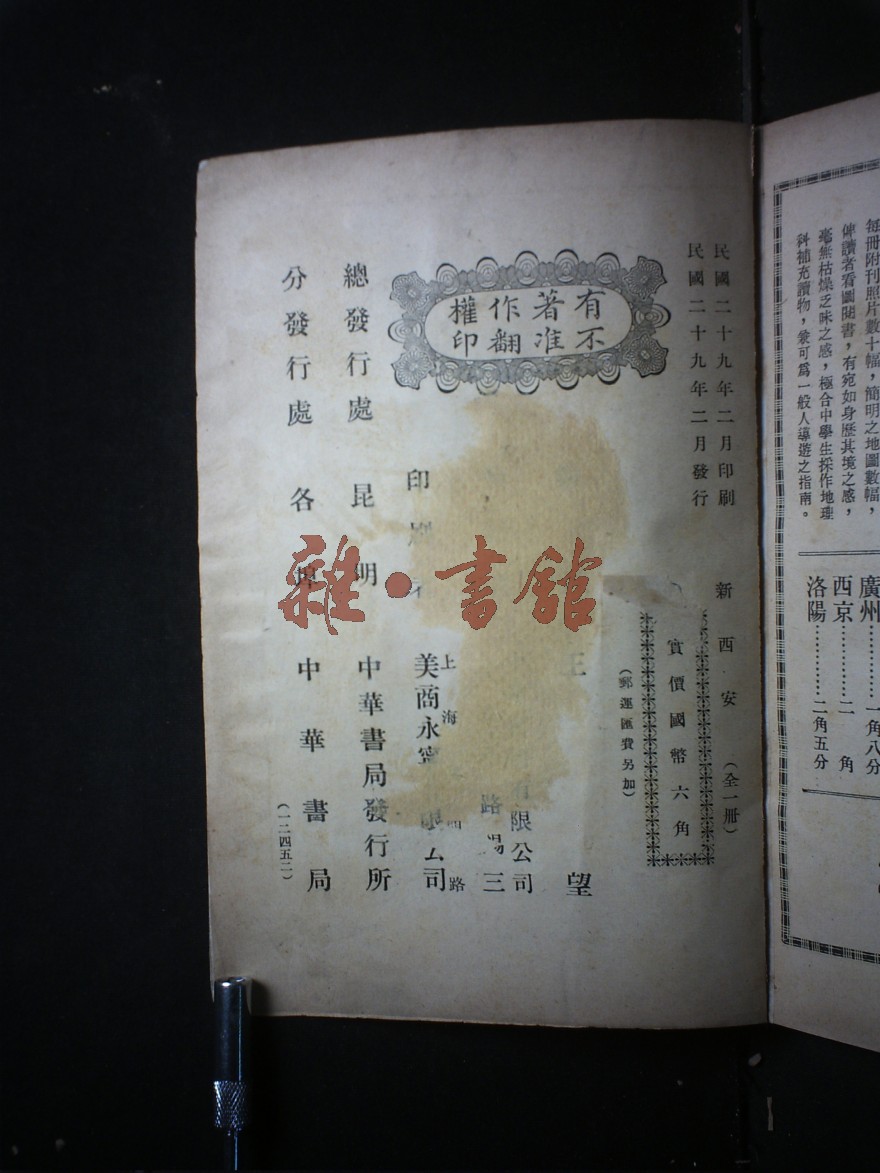 每冊附刊照片數十幅，簡明之地圖數幅，
俾讀者看圖閱書，有宛如身歷其境之感，
毫無枯燥乏味之感，極合中學生採作地理
科補充讀物，兼可爲一般人導遊之指南。
廣州…………一角八分
西京…………二角
洛陽…………二角五分
民國二十九年二月印刷
民國二十九年二月發行
新西安（全一冊）
實價國幣六角
（郵運匯費另加）
有著作權
不准翻印
王望
有限公司
路
三
印刷
上海
路
美商永寧
限公司
總發行處 昆明 中華書局發行所
分發行處 各埠 中華書局
（一二四五二）
雜·書館